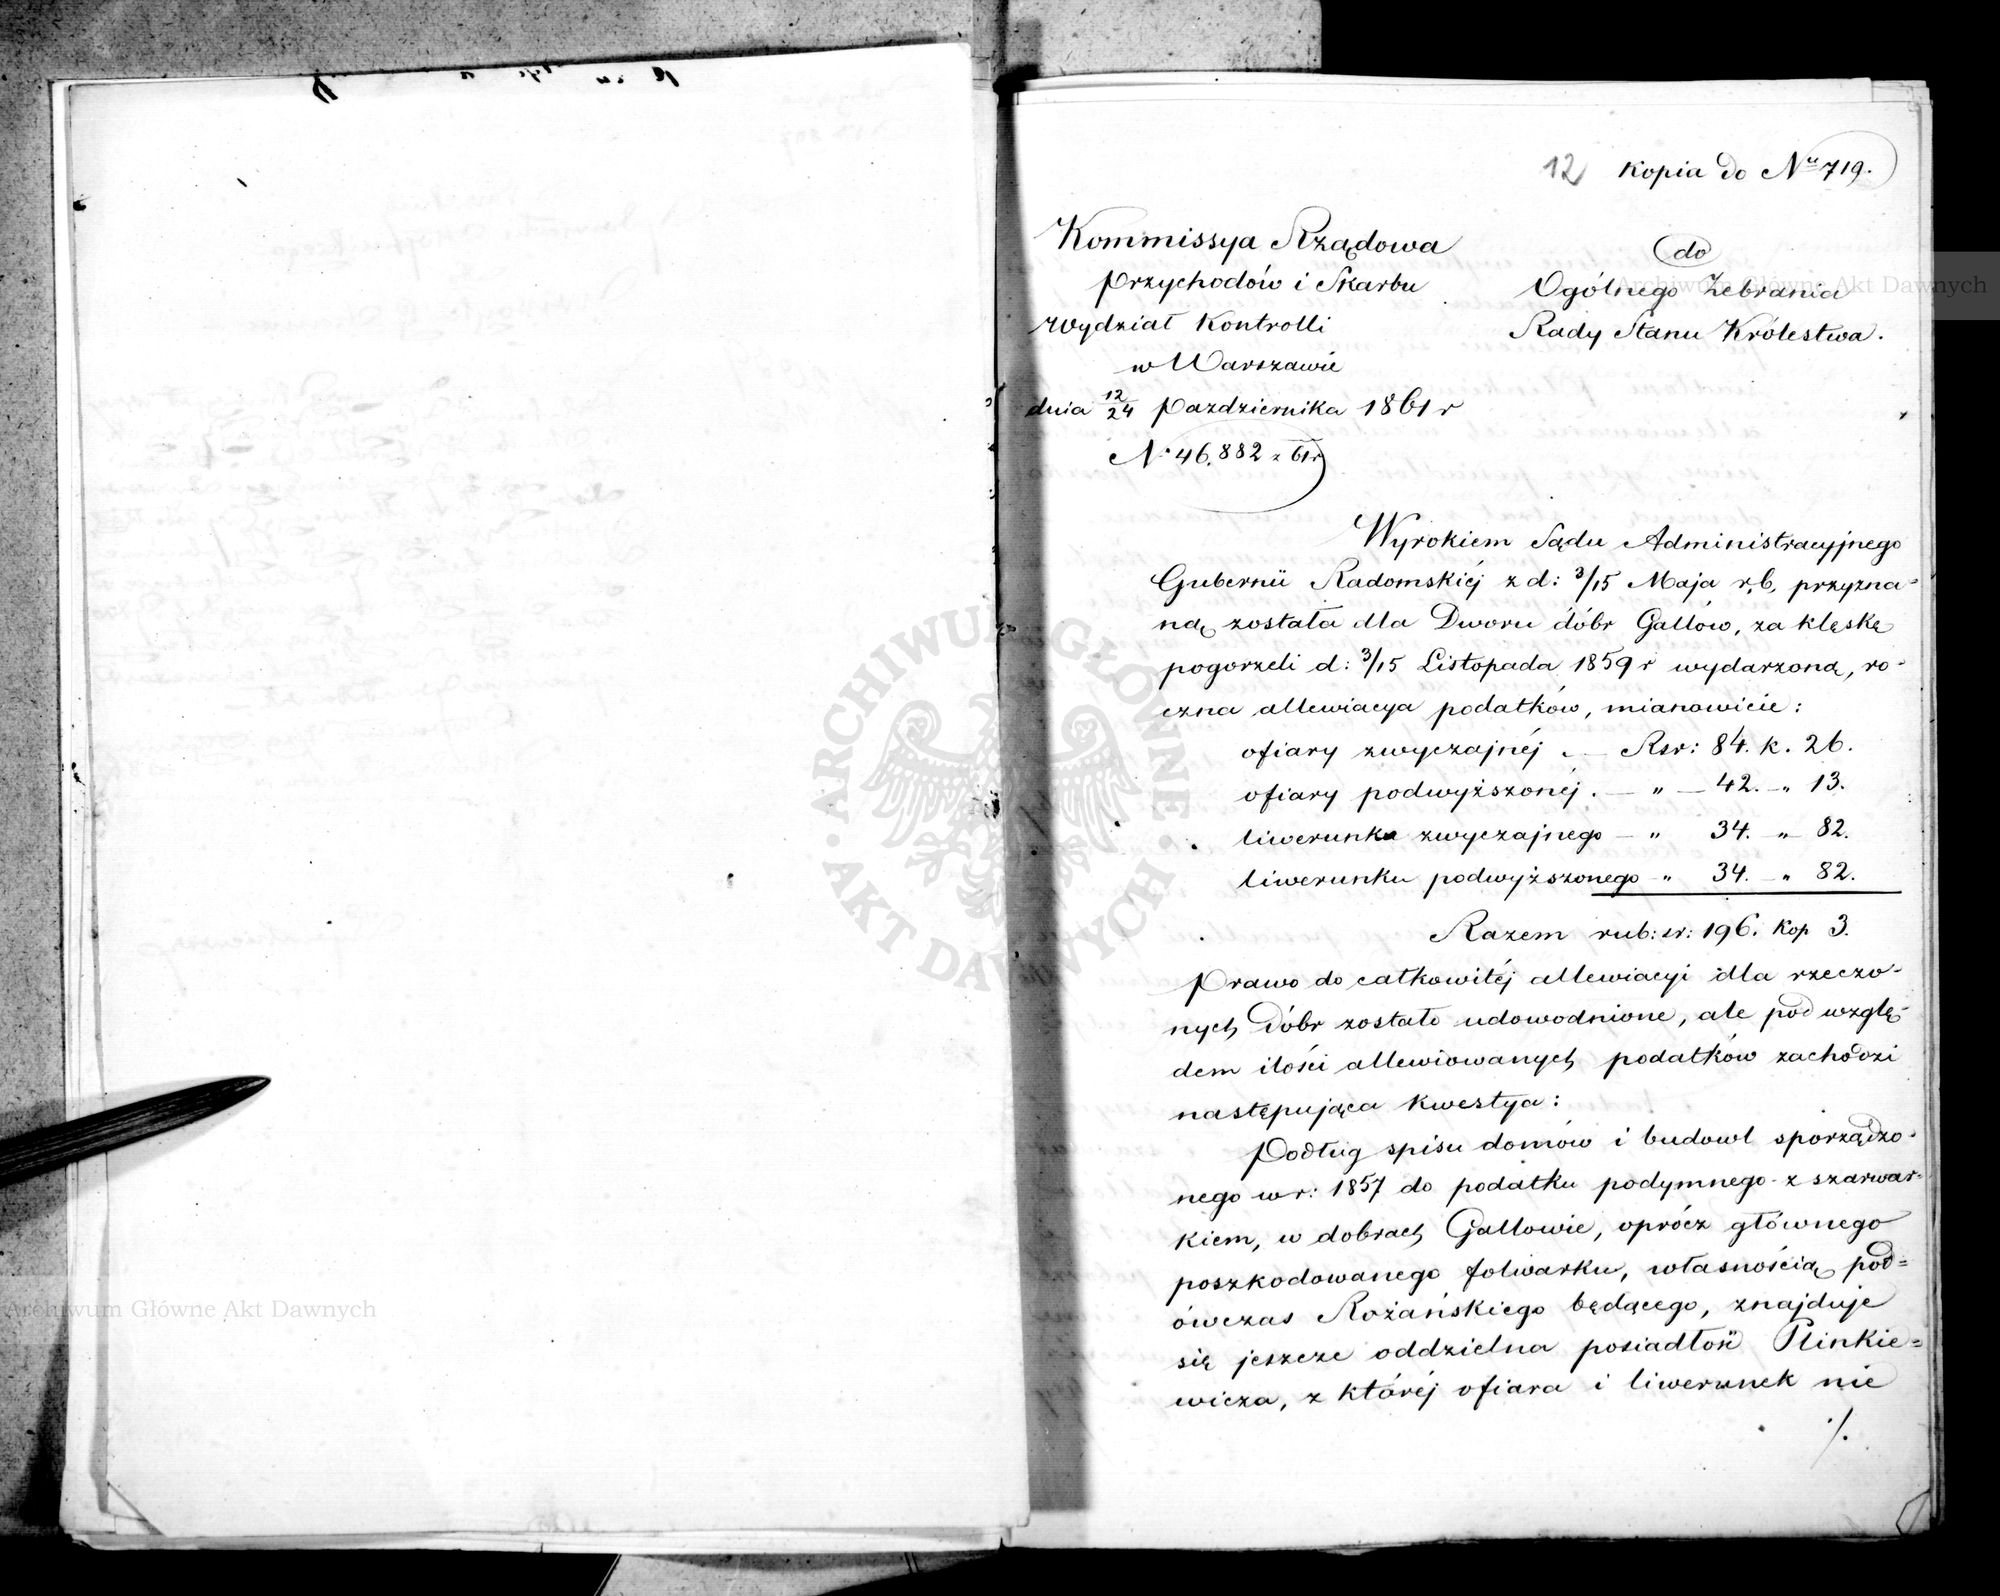 12 Kopia do Nu 719.
Kommissya Rządowa
Przychodów i Skarbu
Wydział Kontrolli
w Warszawie
dnia 12/24 Pazdziernika 1861 r
N. 46.882 z 61r
do
Ogólnego Zebrania
Rady Stanu Królestwa.
Wyrokiem Sądu Administracyjnego
Gubernii Radomskiéj z d: 3/15 Maja r,b, przyzna-
ną została dla Dworu dóbr Gallów, za klęskę
pogorzeli d: 3/15 Listopada 1859 r wydarzoną, ro-
czna allewiacya podatków, mianowicie:
ofiary zwyczajnéj . — Rsr: 84. k. 26.
ofiary podwyższonéj . — " — 42. — " 13.
liwerunku zwyczajnego — " 34. — " 82.
liwerunku podwyższonego — " 34. — " 82.
Razem rub: sr: 196. kop 3.
Prawo do całkowitéj allewiacyi dla rzeczo-
nych dóbr zostało udowodnione, ale pod wzglę-
dem ilości allewiowanych podatków zachodzi
następująca kwestya:
Podług spisu domów i budowl sporządzo-
nego w r: 1857 do podatku podymnego z szarwar-
kiem, w dobrach Gallowie, oprócz głównego
poszkodowanego folwarku, własnością pod=
ówczas Rożańskiego będącego, znajduje
się jeszcze oddzielna posiadłość Plinkie=
wicza, z któréj ofiara i liwerunek nie
./.
Archiwum Główne Akt Dawnych
Archiwum Główne Akt Dawnych
ARCHIWUM GŁÓWNE · AKT DAWNYCH ·